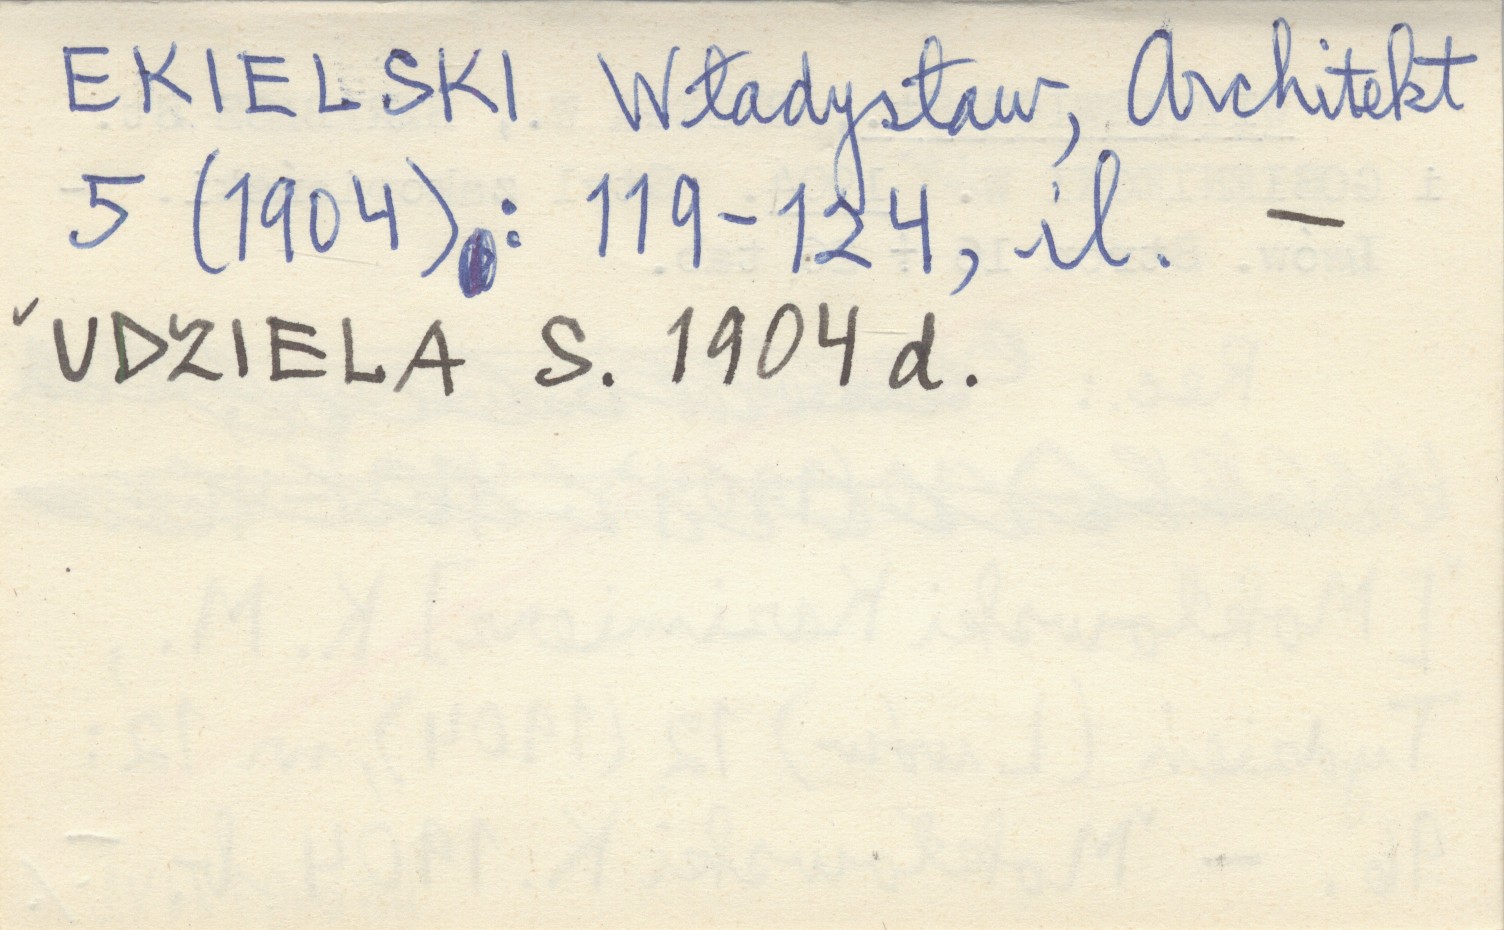 EKIELSKI Władysław, Architekt
5 (1904): 119-124, il. —
UDZIELA S. 1904 d.